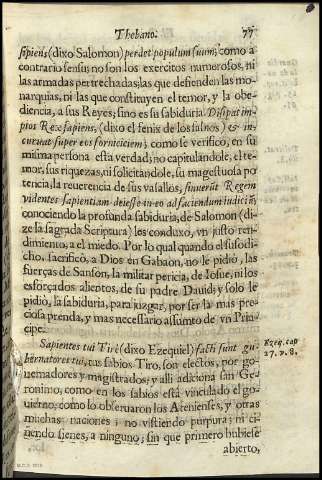 Thebano. 77
sipiens, (dixo Salomon) perdet populum suum; como a
contrario sensu; no son los exercitos numerosos, ni
las armadas pertrechadas; las que defienden las mo-
narquias, ni las que constituyen el temor, y la obe-
diencia, a sus Reyes; sino es su sabiduria. Dissipat im-
pios Rex sapiens, (dixo el fenis de los sabios) & in-
curuat super eos fornicem; como se verificò, en su
misma persona esta verdad; no capitulandole, el te-
mor, sus riquezas, ni solicitandole, su magestuosa po-
tencia, la reuerencia de sus vasallos, timuerūt Regem
videntes sapientiam dei esse in eo ad faciendum iudiciū,
conociendo la profunda sabiduria, de Salomon (di-
ze la sagrada Scriptura) les conduxo, vn justo ren-
dimiento, a el miedo. Por lo qual quando el susodi-
cho, sacrificò, a Dios en Gabaon, no le pidió, las
fuerças de Sanson, la militar pericia, de Iosue, ni los
esforçados alientos, de su padre Dauid; y solo le
pidiò, la sabiduria, para juzgar, por ser la mas pre-
ciosa prenda, y mas necessario assumto de vn Prin-
cipe.
Sapientes tui Tire (dixo Ezequiel) facti sunt gu-
bernatores tui, tus sabios Tiro, son electos, por go-
uernadores y magistrados, y alli adiciona san Ge-
ronimo, como en los sabios està vinculado el go-
uierno, como lo obseruaron los Atenienses, y otras
muchas naciones; no vistiendo purpura; ni ci-
ñendo sienes, a ninguno; sin que primero hubiese
abierto,
Ezeq. cap
27. v. 8.